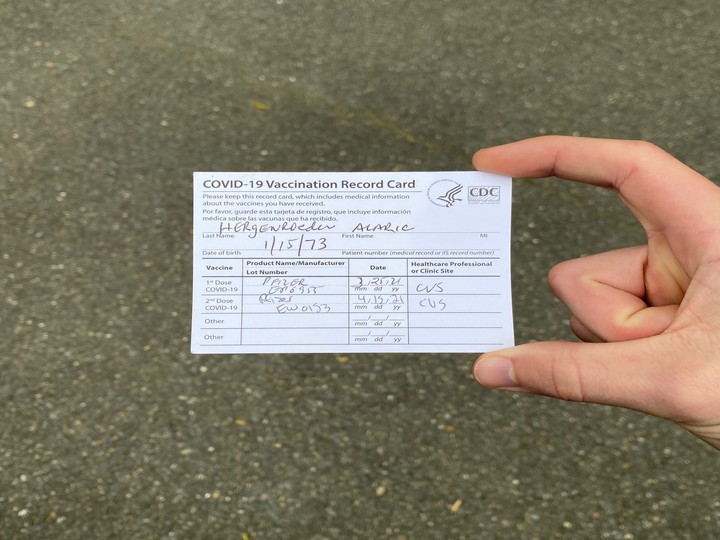 COVID-19 Vaccination Record Card
CDC
Please keep this record card, which includes medical information
about the vaccines you have received.
Por favor, guarde esta tarjeta de registro, que incluye información
médica sobre las vacunas que ha recibido.
HERgENROeder ALARIC
Last Name First Name MI
1/15/73
Date of birth Patient number (medical record or IIS record number)
Vaccine Product Name/Manufacturer Date Healthcare Professional
Lot Number or Clinic Site
1st Dose PFIZER 3,25,21 CVS
COVID-19 mm dd yy
2nd Dose Pfizer 4,15,21 CVS
COVID-19 EW0153 mm dd yy
Other __/__/__
mm dd yy
Other __/__/__
mm dd yy